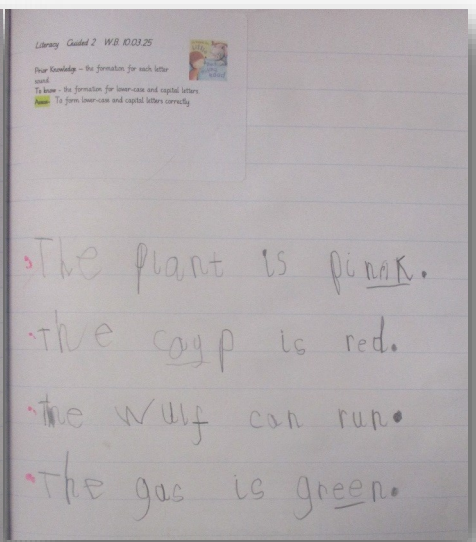 Literacy Guided 2 W.B. 10.03.25
Prior Knowledge – the formation for each letter
sound
To know – the formation for lower-case and capital letters
To form lower-case and capital letters correctly
The plant is pinnk.
The cagp is red.
The wulf can run.
The gas is green.